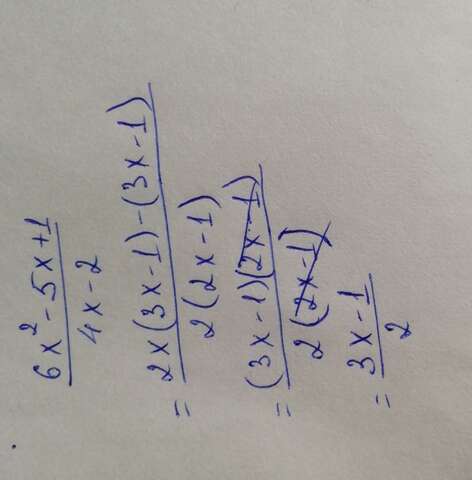 6x² - 5x + 1
4x - 2
= 2x(3x - 1) - (3x - 1)
2(2x - 1)
= (3x - 1)(2x - 1)
2(2x - 1)
= 3x - 1
2